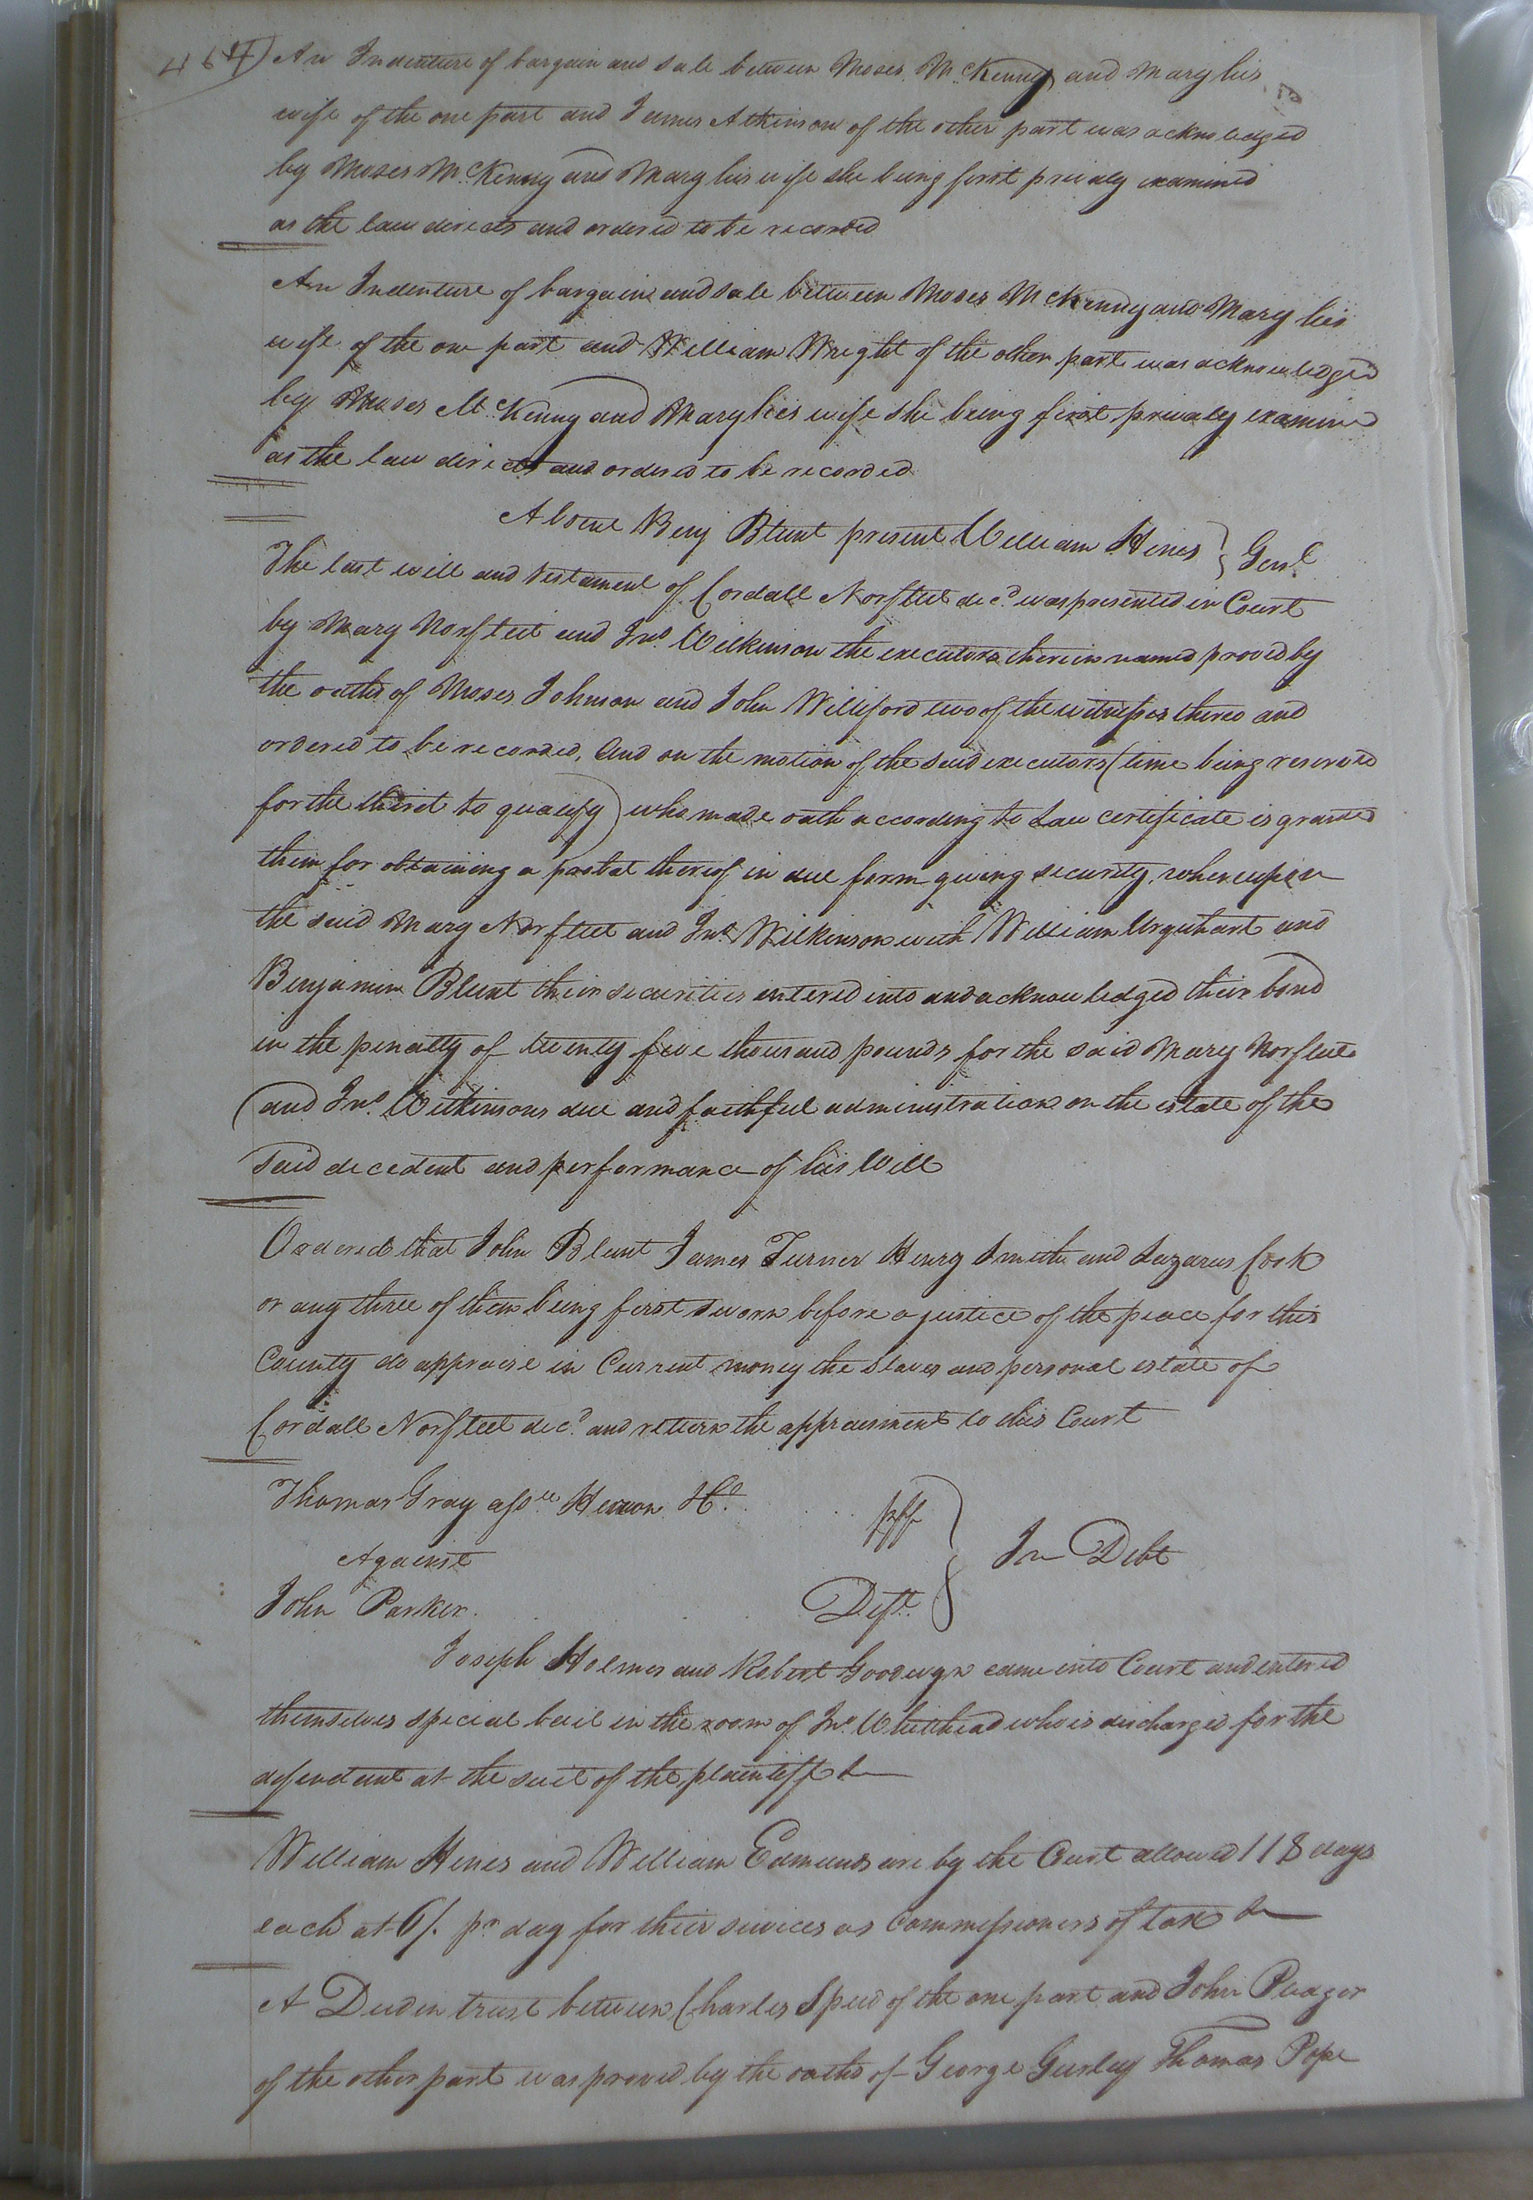 464) An Indenture of bargain and sale between Moses McKenny and Mary his
wife of the one part and James Atkinson of the other part was acknoledged
by Moses McKenny and Mary his wife she being first privaly examined
as the law directs and ordered to be recorded
An Indenture of bargain and sale between Moses McKenny and Mary his
wife of the one part and William Wright of the other part was acknowledged
by Moses McKenny and Mary his wife she being first privaly examined
as the law directs and ordered to be recorded
Absent Benj Blunt present William Hines } Genl
The last will and testament of Cordall Norfleet decd was presented in Court
by Mary Norfleet and Jno. Wilkinson the executors therein named proved by
the oaths of Moses Johnson and John Williford two of the witnesses thereo and
ordered to be recorded, And on the motion of the said executors (time being reserved
for the third to qualify) who made oath according to Law certificate is granted
them for obtaining a probat thereof in due form giving security, whereupon
the said Mary Norfleet and Jno. Wilkinson with William Urquhart and
Benjamin Blunt their securities entered into and acknowledged their bond
in the penalty of twenty five thousand pounds for the said Mary Norfleet
and Jno. Wilkinsons due and faithful administration on the estate of the
said decedent and performance of his Will
Ordered that John Blunt James Turner Henry Smith and Lazarus Cook
or any three of them being first sworn before a justice of the peace for this
County do appraise in Current money the slaves and personal estate of
Cordall Norfleet decd. and return the appraisment to this Court
Thomas Gray assee Ho. pff
Against } In Debt
John Parker. Deft.
Joseph Holmes and Robert Goodwyn came into Court and entered
themselves special bail in the room of Jno Whitehead who is discharged for the
defendant at the suit of the plaintiff &
William Hines and William Edmunds are by the Court allowed 118 days
each at 6/. pr day for their services as commissioners of tax &
A Deed in trust between Charles Speed of the one part and John Peagor
of the other part was proved by the oaths of George Gurley Thomas Pope